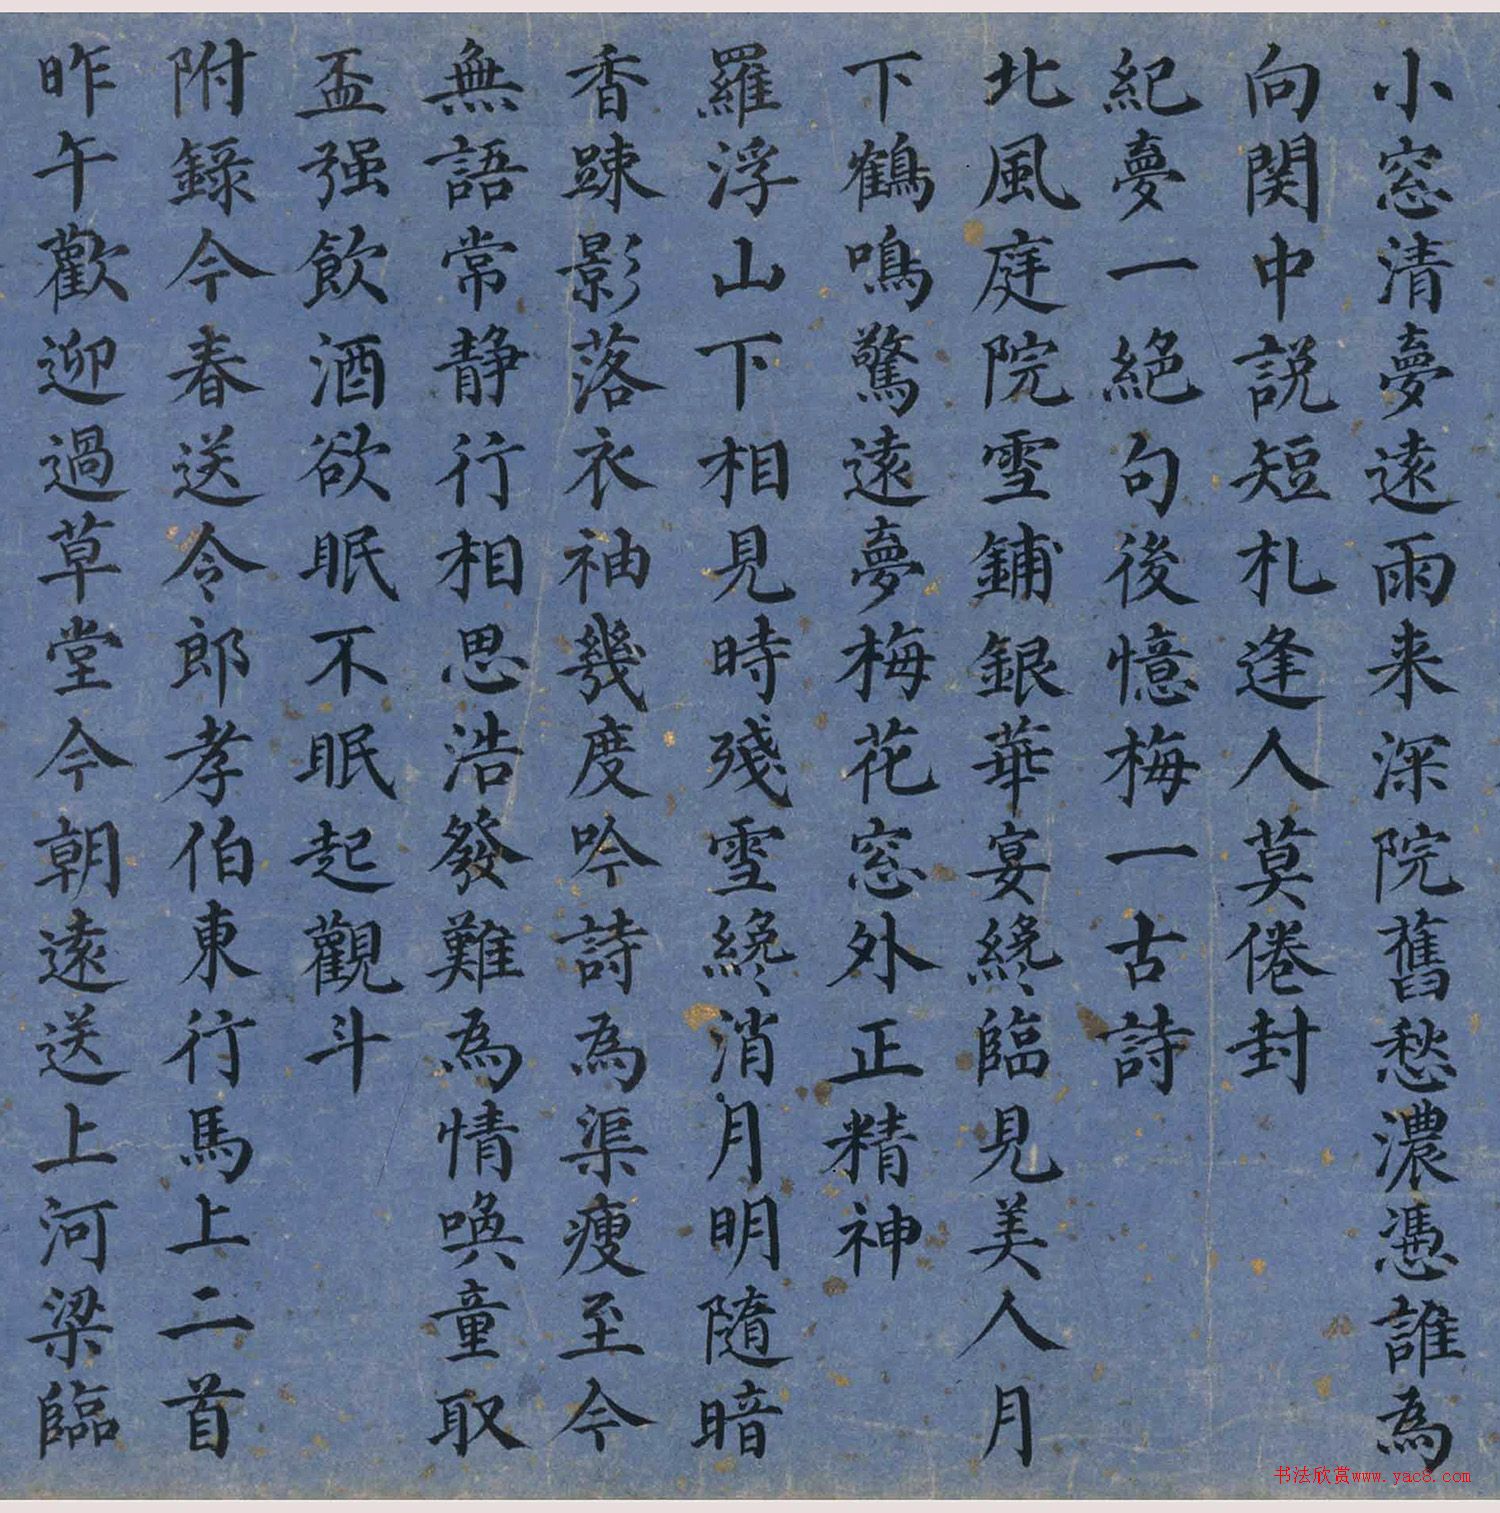 小窓清夢遠雨来深院舊愁濃憑誰為
向関中説短札逢人莫倦封
紀夢一絶句後憶梅一古詩
北風庭院雪鋪銀華宴纔臨見美人月
下鶴鳴驚遠夢梅花窓外正精神
羅浮山下相見時殘雪纔消月明隨暗
香踈影落衣袖幾度吟詩為渠瘦至今
無語常静行相思浩發難為情喚童取
盃强飲酒欲眠不眠起觀斗
附録今春送令郎孝伯東行馬上二首
昨午歡迎過草堂今朝遠送上河梁臨
书法欣赏www.yac8.com